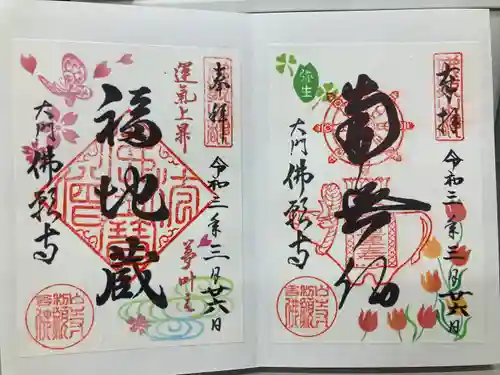 奉拝
令和三年三月廿六日
弥生
南無仏
大門 佛願寺
奉拝
令和三年三月廿六日
運氣上昇
福地蔵
大門 佛願寺